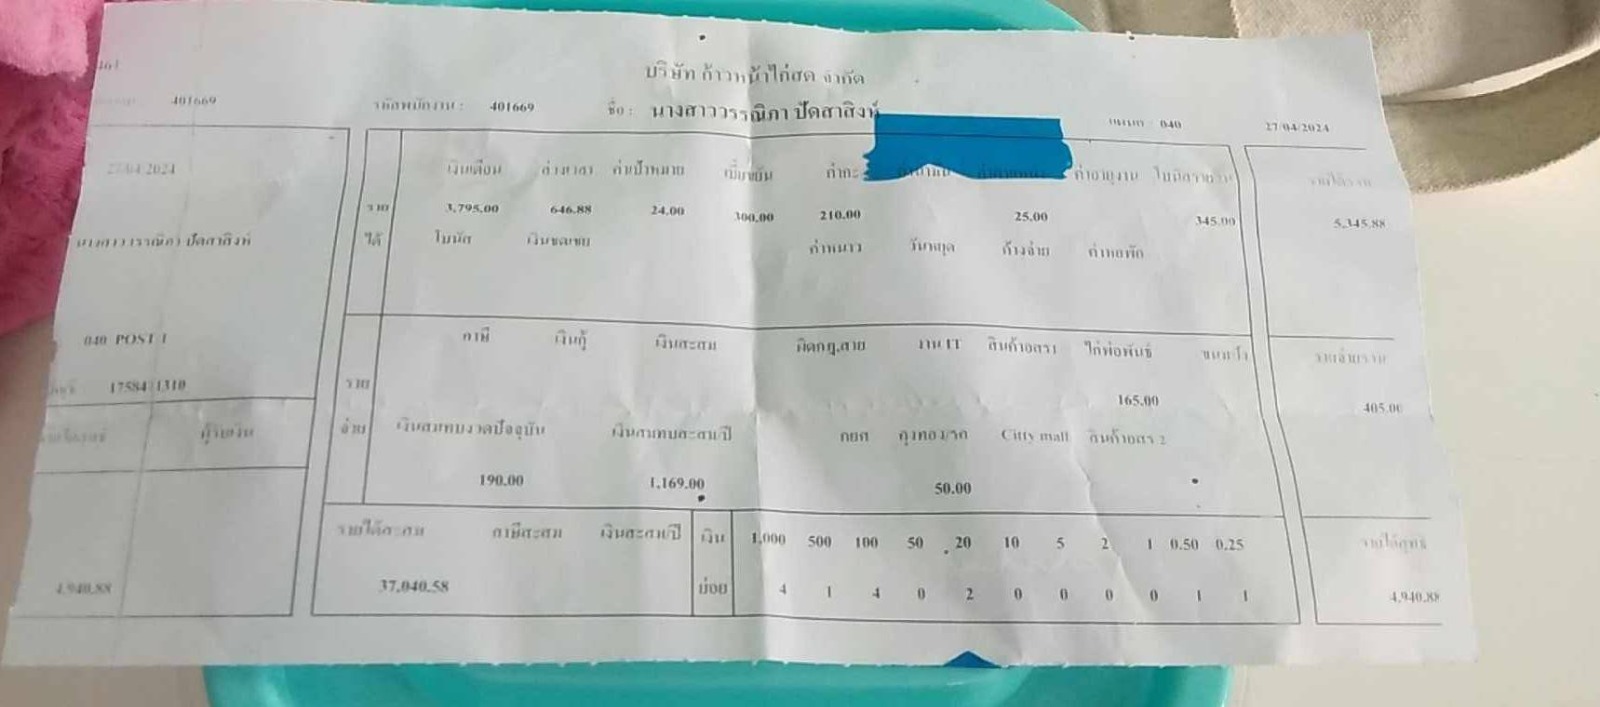 บริษัท ก้าวหน้าไก่สด จำกัด
401669 รหัสพนักงาน : 401669 ชื่อ : นางสาววรรณิภา ปัดสาสิงห์ แผนก 040 27/04/2024
27/04/2024 เงินเดือน ค่าเป้าหมาย เบี้ยขยัน ค่ากะ ค่าอายุงาน รายได้รวม
ราย 3,795.00 646.88 24.00 300.00 210.00 25.00 345.00 5,345.88
นางสาววรรณิภา ปัดสาสิงห์ ได้ โบนัส เงินชดเชย ค่าหนาว วันหยุด ค้างจ่าย ค่าหอพัก
040 POST 1 ภาษี เงินกู้ เงินสะสม ผิดกฎ,สาย งาน IT สินค้าอสร1 ไก่พ่อพันธุ์ รายจ่ายรวม
17584 1310 ราย 165.00 405.00
รายได้สุทธิ ผู้รับเงิน จ่าย เงินสมทบงวดปัจจุบัน เงินสมทบสะสม/ปี กยศ Citty mall สินค้าอสร 2
190.00 1,169.00 50.00
รายได้สะสม ภาษีสะสม เงินสะสม/ปี เงิน 1,000 500 100 50 20 10 5 2 1 0.50 0.25 รายได้สุทธิ
4,940.88 37,040.58 ย่อย 4 1 4 0 2 0 0 0 0 1 1 4,940.88